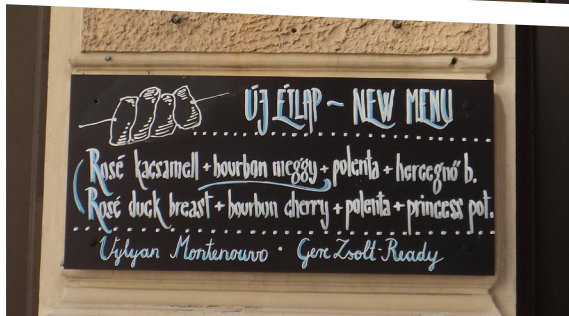 ÚJ ÉTLAP ~ NEW MENU
Rosé kacsamell + bourbon meggy + polenta + hercegnő b.
Rosé duck breast + bourbon cherry + polenta + princess pot.
Vylyan Montenouvo · Gere Zsolt - Ready